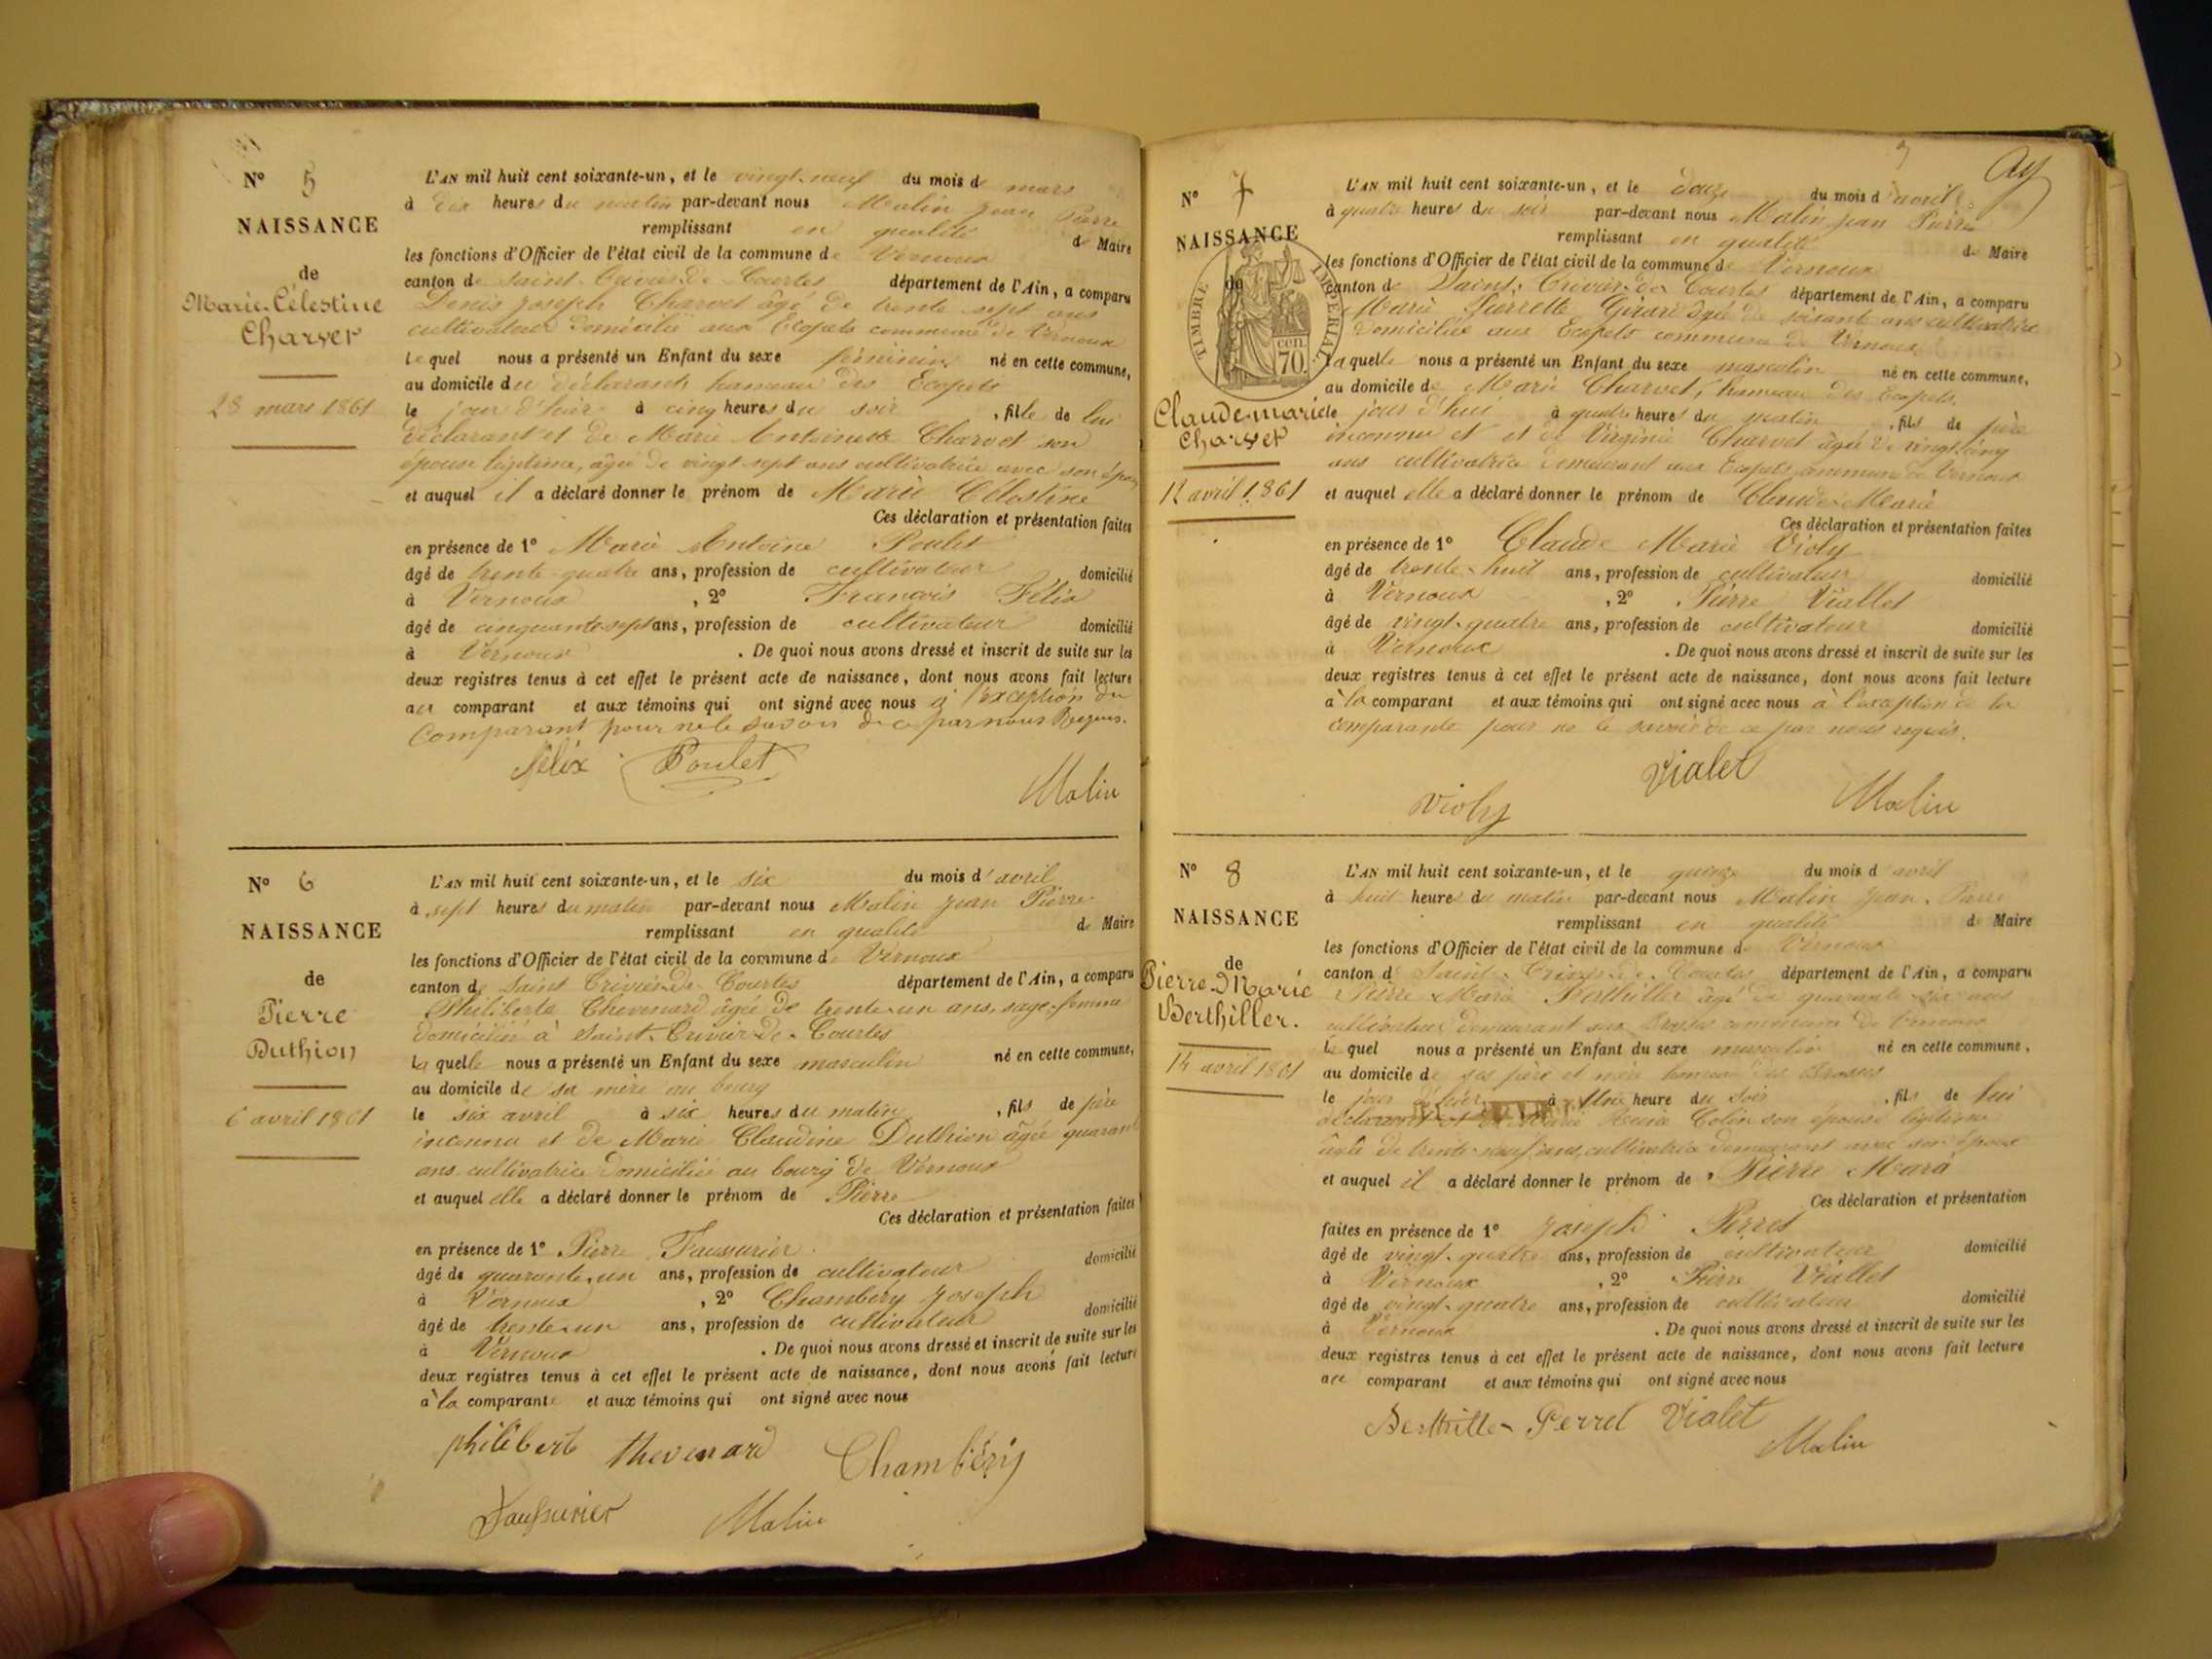 N° 5
NAISSANCE
de
Marie-Célestine
Charvet
28 mars 1861
L'AN mil huit cent soixante-un, et le vingt-neuf du mois de mars
à dix heures du matin par-devant nous Malin Jean Pierre
remplissant en qualité de Maire
les fonctions d'Officier de l'état civil de la commune de Vernoux
canton de Saint-Trivier-de-Courtes département de l'Ain, a comparu
Denis Joseph Charvet âgé de trente sept ans
cultivateur domicilié aux Ecopets commune de Vernoux
lequel nous a présenté un Enfant du sexe féminin né en cette commune,
au domicile du déclarant, hameau des Ecopets
le jour d'hier à cinq heures du soir, fille de lui
déclarant et de Marie Antoinette Charvet son
épouse légitime, âgée de vingt-sept ans cultivatrice avec son époux
et auquel il a déclaré donner le prénom de Marie Célestine
Ces déclaration et présentation faites
en présence de 1° Marie Antoine Poulet
âgé de trente-quatre ans, profession de cultivateur domicilié
à Vernoux, 2° François Félix
âgé de cinquante-sept ans, profession de cultivateur domicilié
à Vernoux. De quoi nous avons dressé et inscrit de suite sur les
deux registres tenus à cet effet le présent acte de naissance, dont nous avons fait lecture
au comparant et aux témoins qui ont signé avec nous à l'exception du
Comparant pour ne le savoir de ce par nous Requis.
félix Poulet
Malin
N° 6
NAISSANCE
de
Pierre
Duthion
6 avril 1861
L'AN mil huit cent soixante-un, et le six du mois d'avril
à sept heures du matin par-devant nous Malin Jean Pierre
remplissant en qualité de Maire
les fonctions d'Officier de l'état civil de la commune de Vernoux
canton de Saint Trivier-de-Courtes département de l'Ain, a comparu
Philiberte Thevenard âgée de trente-un ans, sage-femme
domiciliée à Saint-Trivier-de-Courtes
laquelle nous a présenté un Enfant du sexe masculin né en cette commune,
au domicile de sa mère au bourg
le six avril à six heures du matin, fils de père
inconnu et de Marie Claudine Duthion âgée quarante
ans cultivatrice domiciliée au bourg de Vernoux
et auquel elle a déclaré donner le prénom de Pierre
Ces déclaration et présentation faites
en présence de 1° Pierre Faussurier
âgé de quarante-un ans, profession de cultivateur domicilié
à Vernoux, 2° Chambéry Joseph
âgé de trente-un ans, profession de cultivateur domicilié
à Vernoux. De quoi nous avons dressé et inscrit de suite sur les
deux registres tenus à cet effet le présent acte de naissance, dont nous avons fait lecture
à la comparante et aux témoins qui ont signé avec nous
philibert thevenard Chambéry
Faussurier Malin
N° 7
NAISSANCE
de
TIMBRE IMPERIAL
70 cen
Claude-marie
Charvet
12 avril 1861
L'AN mil huit cent soixante-un, et le douze du mois d'avril
à quatre heures du soir par-devant nous Malin Jean Pierre
remplissant en qualité de Maire
les fonctions d'Officier de l'état civil de la commune de Vernoux
canton de Saint-Trivier-de-Courtes département de l'Ain, a comparu
Marie Pierrette Girard âgée de soixante ans cultivatrice
domiciliée aux Ecopets commune de Vernoux
laquelle nous a présenté un Enfant du sexe masculin né en cette commune,
au domicile de Marie Charvet, hameau des Ecopets
le jour d'hui à quatre heures du matin, fils de père
inconnu et et de Virginie Charvet âgée de vingt-cinq
ans cultivatrice demeurant aux Ecopets commune de Vernoux
et auquel elle a déclaré donner le prénom de Claude-Marie
Ces déclaration et présentation faites
en présence de 1° Claude Marie Violy
âgé de trente-huit ans, profession de cultivateur domicilié
à Vernoux, 2° Pierre Viallet
âgé de vingt-quatre ans, profession de cultivateur domicilié
à Vernoux. De quoi nous avons dressé et inscrit de suite sur les
deux registres tenus à cet effet le présent acte de naissance, dont nous avons fait lecture
à la comparant et aux témoins qui ont signé avec nous à l'exception de la
comparante pour ne le savoir de ce par nous requis.
Vialet
Violy Malin
N° 8
NAISSANCE
de
Pierre-Marie
Berthiller.
14 avril 1861
L'AN mil huit cent soixante-un, et le quinze du mois d'avril
à huit heures du matin par-devant nous Malin Jean-Pierre
remplissant en qualité de Maire
les fonctions d'Officier de l'état civil de la commune de Vernoux
canton de Saint-Trivier-de-Courtes département de l'Ain, a comparu
Pierre Marie Berthiller âgé de quarante-six ans
cultivateur demeurant aux Brosses commune de Vernoux
lequel nous a présenté un Enfant du sexe masculin né en cette commune,
au domicile de ses père et mère hameau des Brosses
le jour d'hier à Une heure du soir, fils de lui
déclarant et de Marie Colin son épouse légitime
âgée de trente-neuf ans, cultivatrice demeurant avec son époux
et auquel il a déclaré donner le prénom de Pierre Marie
Ces déclaration et présentation
faites en présence de 1° Joseph Perret
âgé de vingt-quatre ans, profession de cultivateur domicilié
à Vernoux, 2° Pierre Viallet
âgé de vingt-quatre ans, profession de cultivateur domicilié
à Vernoux. De quoi nous avons dressé et inscrit de suite sur les
deux registres tenus à cet effet le présent acte de naissance, dont nous avons fait lecture
au comparant et aux témoins qui ont signé avec nous
Berthiller Perret Vialet
Malin